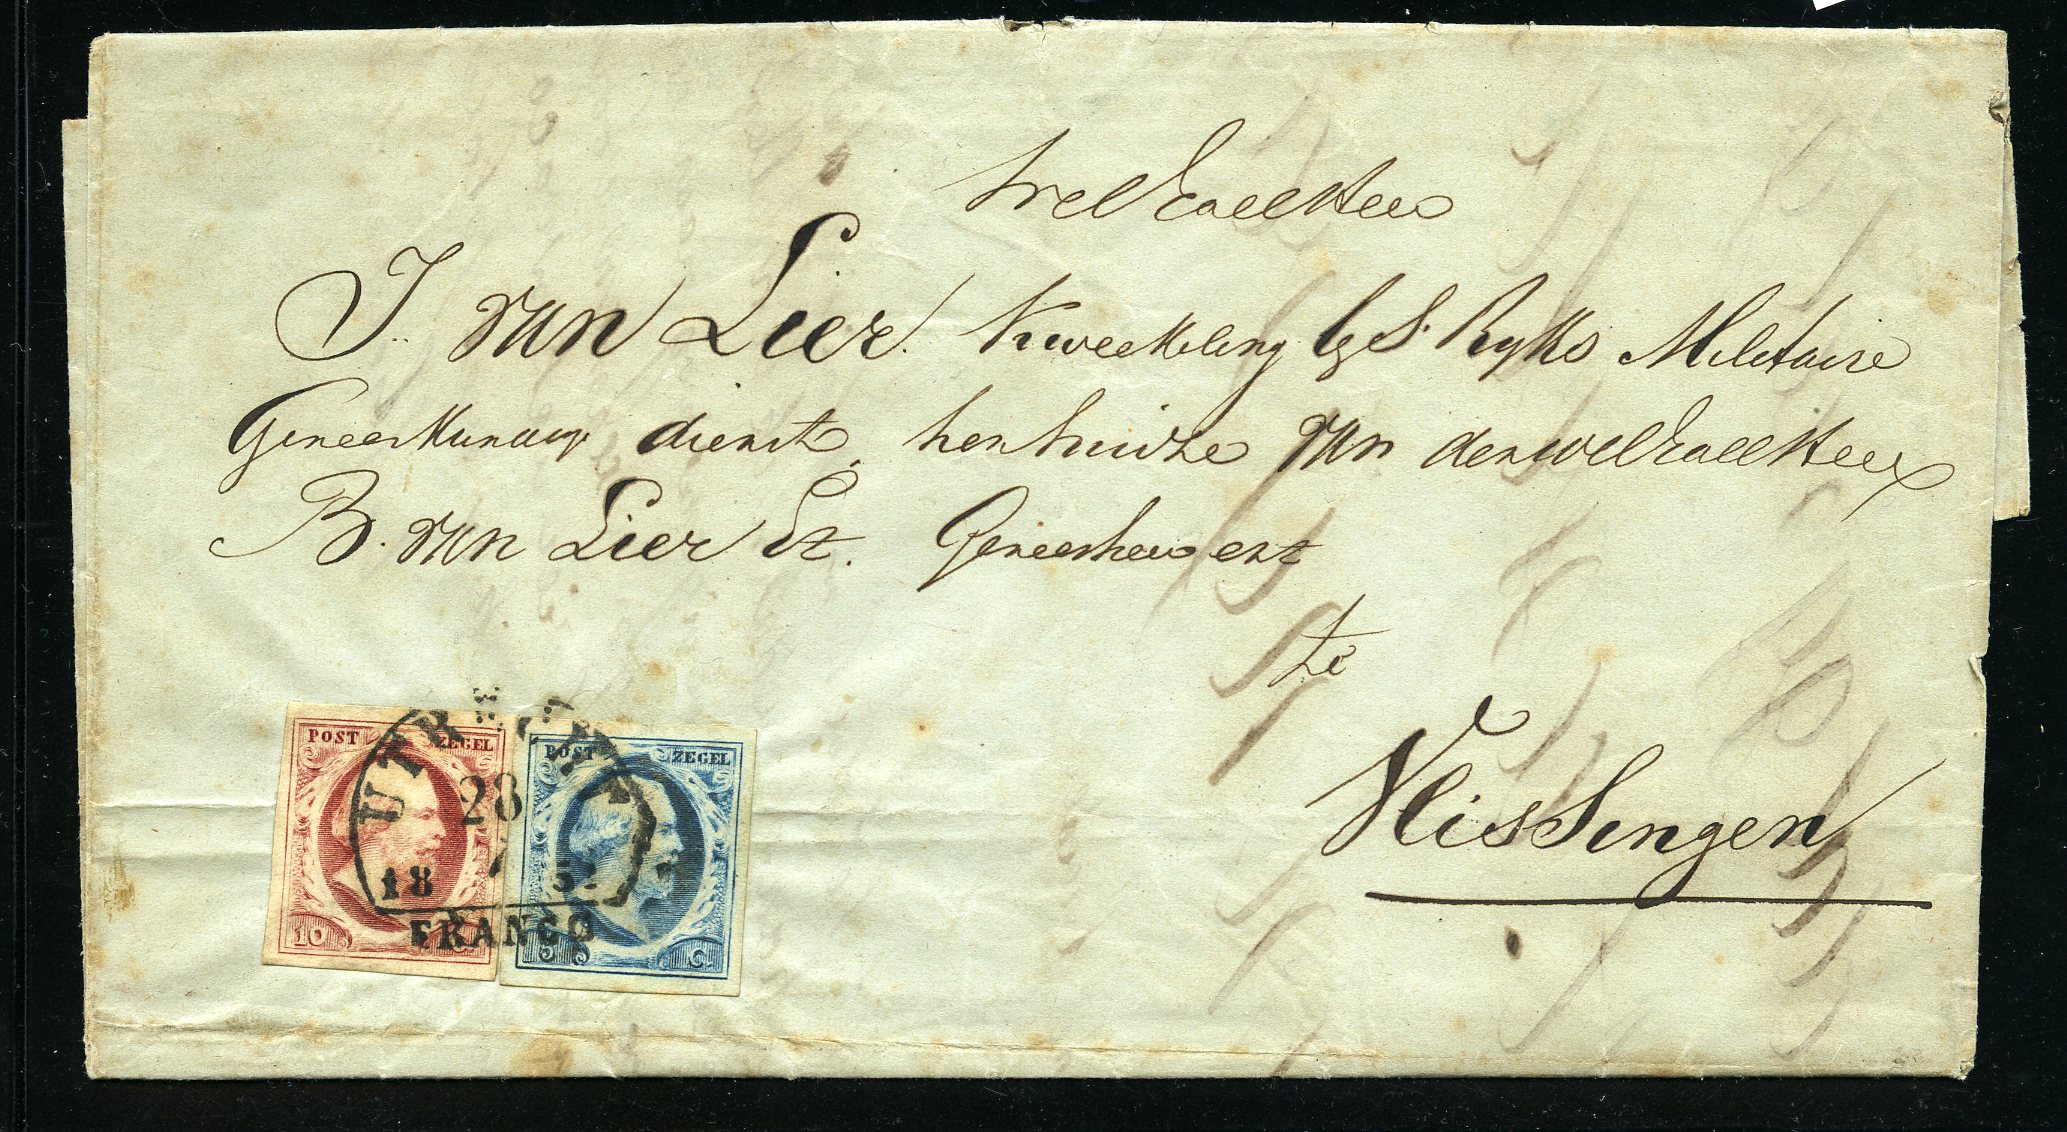 Wel Edele Heer
J. van Lier. Kweekeling by S. Ryks Militaire
Geneeskundige dienst, ten huize van den wel Edele Heer
B. van Lier Sz. Geneesheer enz
te
Vlissingen
POST ZEGEL
10
POST ZEGEL
5 C
UTRECHT
28
7
18 5
FRANCO